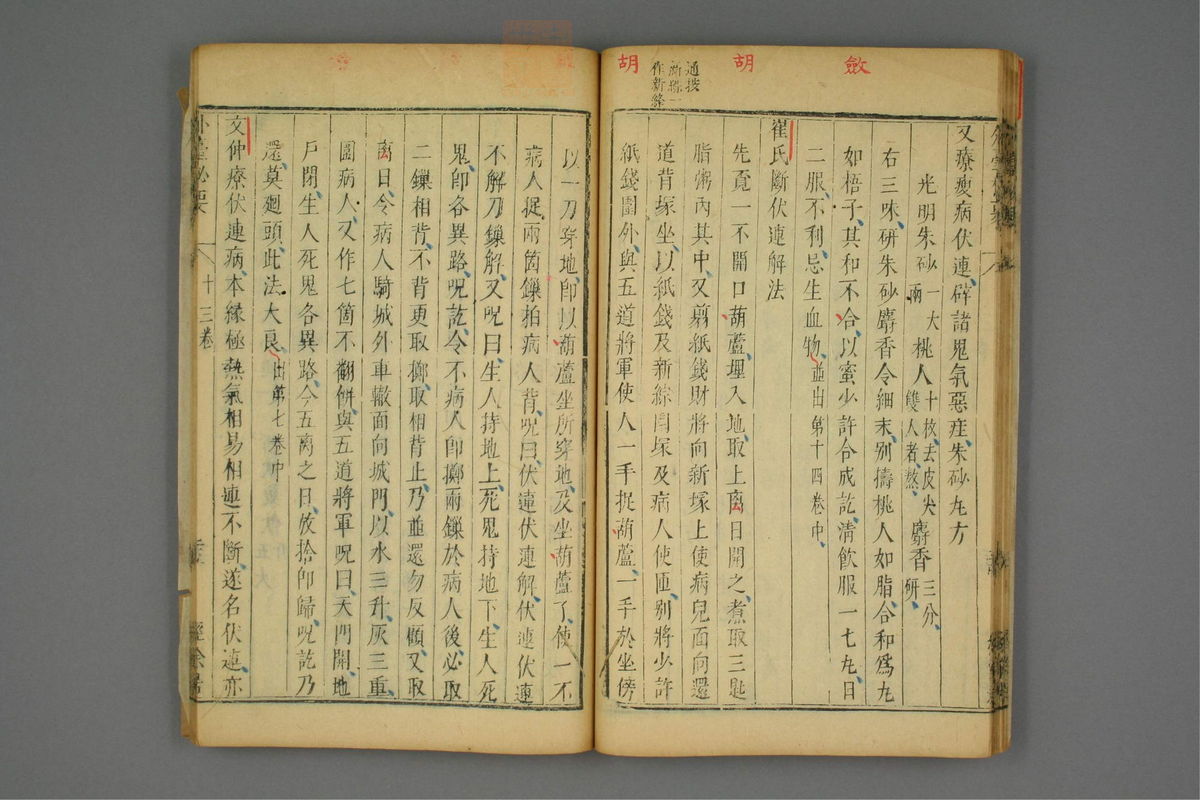 斂
胡
胡
通按
新綜一
作新絳
又療瘦病伏連辟諸鬼氣惡疰朱砂丸方
光明朱砂一大兩 桃人十枚去皮尖雙人者熬 麝香三分研
右三味研朱砂麝香令細末別擣桃人如脂合和爲丸
如梧子其和不合以蜜少許合成訖淸飮服一七丸日
二服不利忌生血物並出第十四卷中
崔氏斷伏連解法
先覓一不開口葫蘆埋入地取上离日開之煮取三匙
脂粥內其中又剪紙錢財將向新塚上使病兒面向還
道背塚坐以紙錢及新綜圍塚及病人使匝別將少許
紙錢圍外與五道將軍使人一手捉葫蘆一手於坐傍
以一刀穿地卽以葫蘆坐所穿地及坐葫蘆了使一不
病人捉兩箇鏁拍病人背呪曰伏連伏連解伏連伏連
不解刀鏁解又呪曰生人持地上死鬼持地下生人死
鬼卽各異路呪訖令不病人卽擲兩鏁於病人後必取
二鏁相背不背更取擲取相背止乃並還勿反顧又取
离日令病人騎城外車轍面向城門以水三升灰三重
圍病人又作七箇不翻餅與五道將軍呪曰天門開地
戶閉生人死鬼各異路今五离之日放捨卽歸呪訖乃
還莫廻頭此法大良出第七卷中
文仲療伏連病本緣極熱氣相易相連不斷遂名伏連亦
外臺秘要
十三卷
經餘居